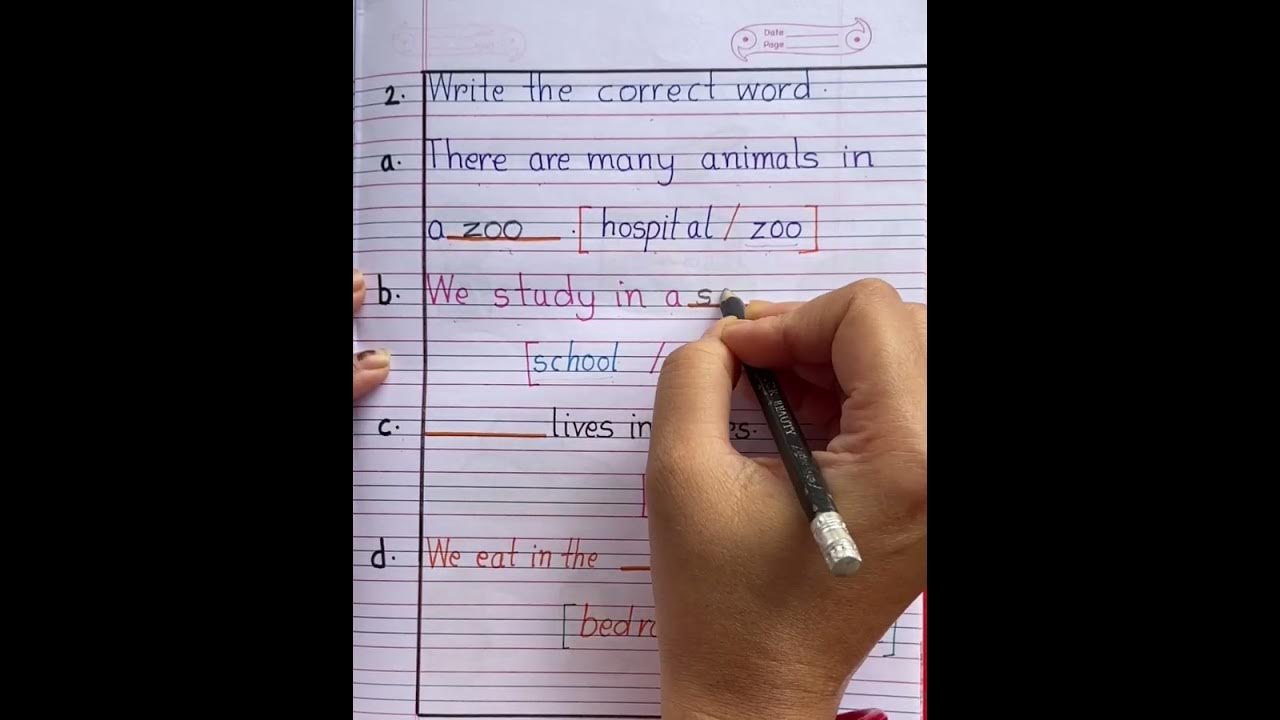 Date
Page
2. Write the correct word.
a. There are many animals in
a zoo . [ hospital / zoo ]
b. We study in a s
[ school /
c. ______ lives in
d. We eat in the __
[
BEAUTY